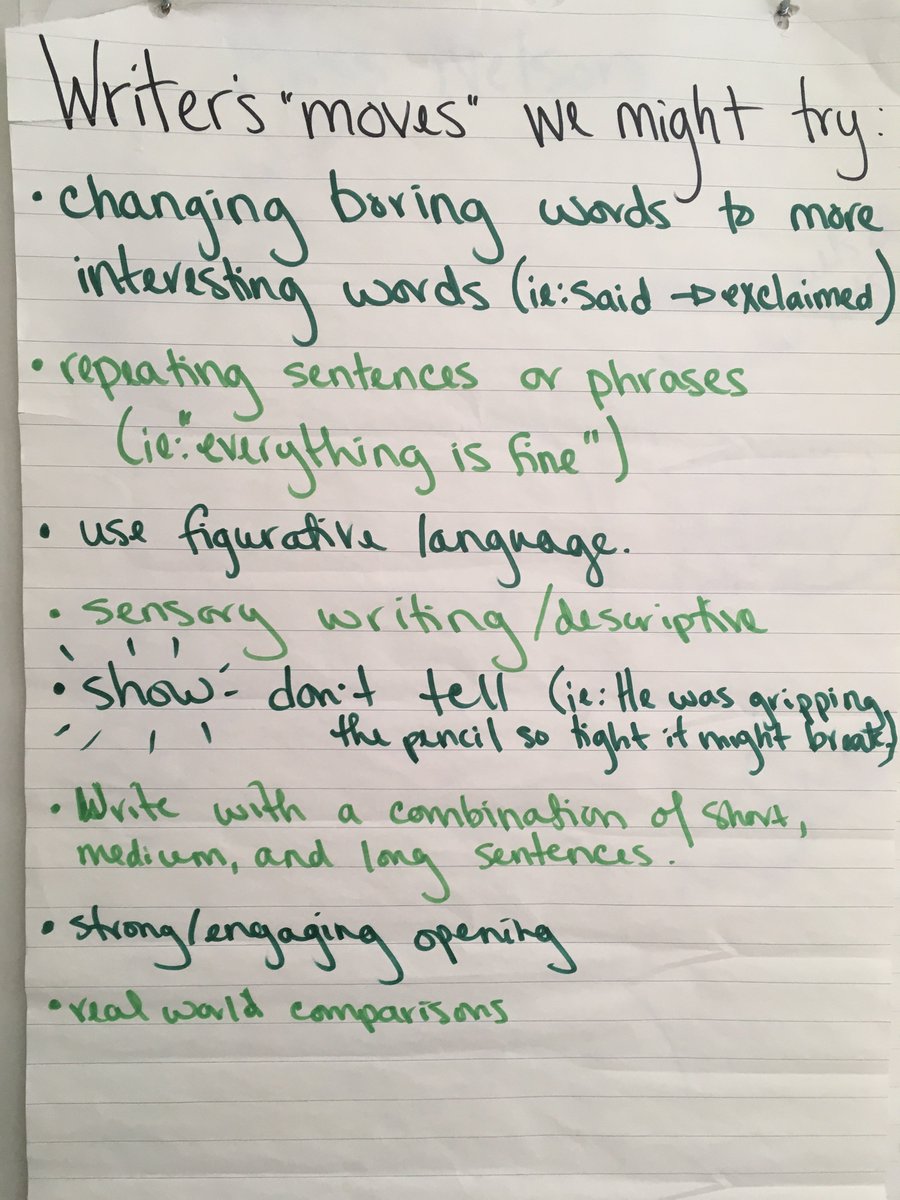 Writer's "moves" we might try:
• changing boring words to more
interesting words (ie: said → exclaimed)
• repeating sentences or phrases
(ie: "everything is fine")
• use figurative language.
• sensory writing/descriptive
• show - don't tell (ie: He was gripping
the pencil so tight it might break.)
• Write with a combination of short,
medium, and long sentences.
• strong/engaging opening
• real world comparisons